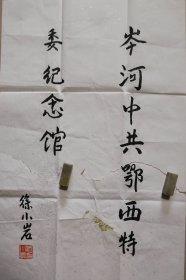 岑河中共鄂西特
委纪念馆
徐小岩